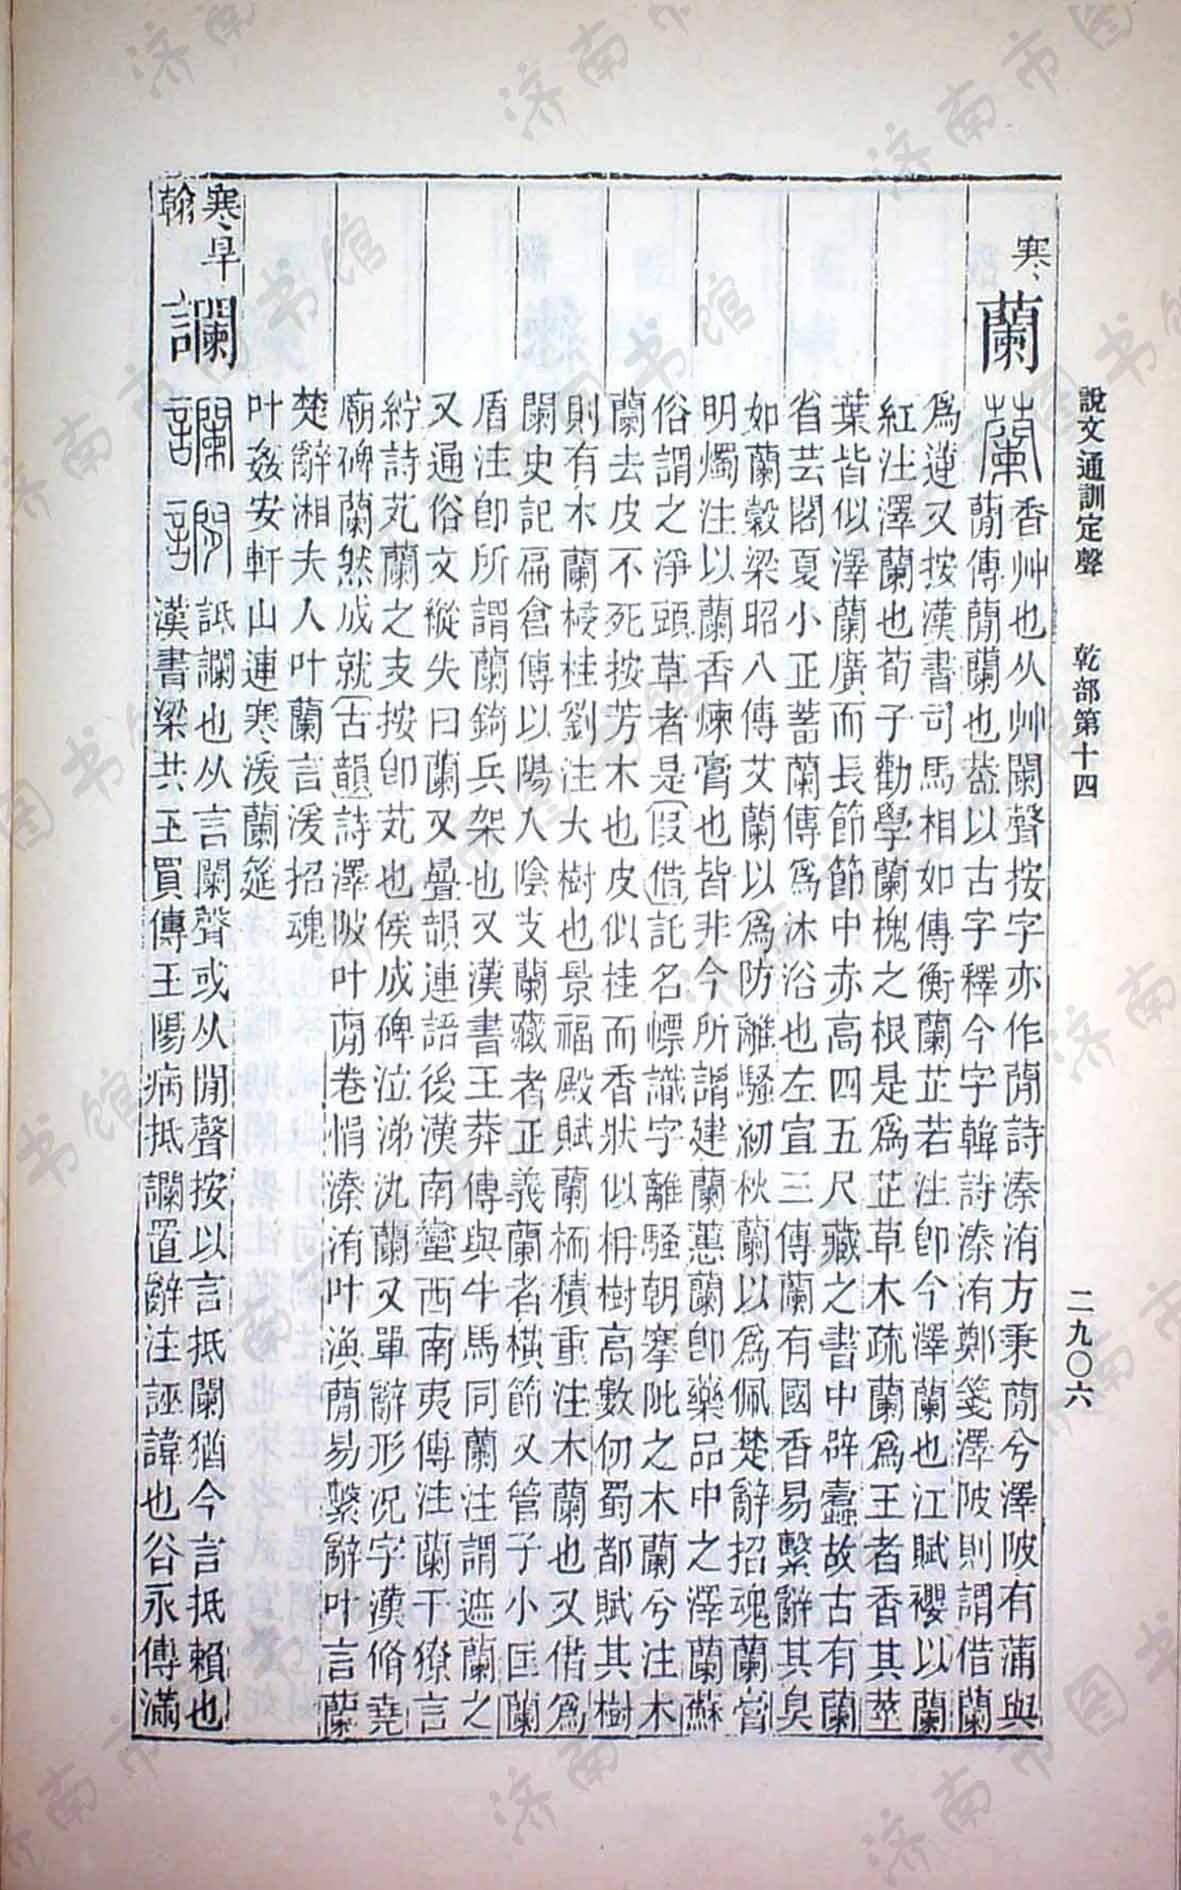 說文通訓定聲　乾部第十四　二九〇六
寒〻
蘭
蘭
香艸也从艸闌聲按字亦作蕑詩溱洧方秉蕑兮澤陂有蒲與
蕑傳蕑蘭也葢以古字釋今字韓詩溱洧鄭箋澤陂則謂借蘭
爲蓮又按漢書司馬相如傳衡蘭芷若注卽今澤蘭也江賦櫻以蘭
紅注澤蘭也荀子勸學蘭槐之根是爲芷草木疏蘭爲王者香其莖
葉皆似澤蘭廣而長節節中赤高四五尺藏之書中辟蠹故古有蘭
省芸閣夏小正蓄蘭傳爲沐浴也左宣三傳蘭有國香易繫辭其臭
如蘭穀梁昭八傳艾蘭以爲防離騷紉秋蘭以爲佩楚辭招魂蘭膏
明燭注以蘭香煉膏也皆非今所謂建蘭蕙蘭卽藥品中之澤蘭蘇
俗謂之淨頭草者是(假借)託名幖識字離騷朝搴阰之木蘭兮注木
蘭去皮不死按芳木也皮似桂而香狀似枏樹高數仞蜀都賦其樹
則有木蘭梫桂劉注大樹也景福殿賦蘭栭積重注木蘭也又借爲
闌史記扁倉傳以陽入陰支蘭藏者正義蘭者橫節又管子小匡蘭
盾注卽所謂蘭錡兵架也又漢書王莽傳與牛馬同蘭注謂遮蘭之
又通俗文縱失曰蘭又疊韻連語後漢南蠻西南夷傳注蘭干獠言
紵詩芄蘭之支按卽芄也侯成碑泣涕汍蘭又單辭形況字漢脩堯
廟碑蘭然成就(古韻)詩澤陂叶蕑卷悁溱洧叶渙蕑易繫辭叶言蘭
楚辭湘夫人叶蘭言湲招魂
叶姦安軒山連寒湲蘭筵
寒〻旱
翰
讕
讕
詆讕也从言闌聲或从閒聲按以言抵闌猶今言抵賴也
漢書梁共王買傳王陽病抵讕置辭注誣諱也谷永傳滿
济南市图书馆